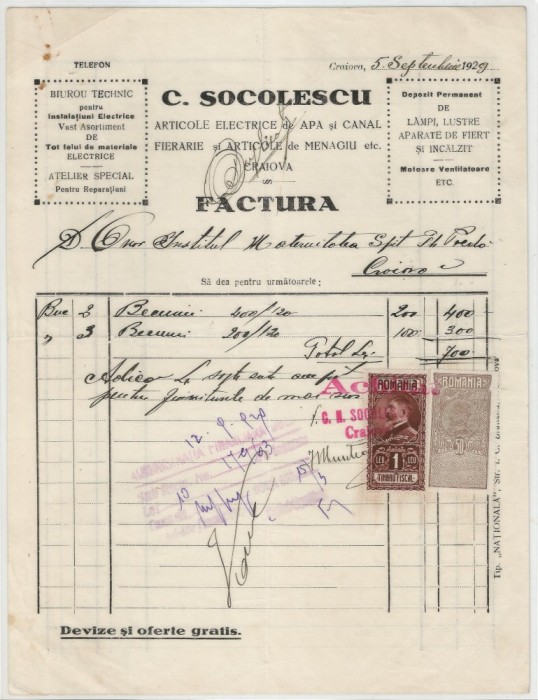 TELEFON
Craiova, 5 Septembrie 1929
BIUROU TECHNIC
pentru
Instalațiuni Electrice
Vast Asortiment
DE
Tot felul de materiale
ELECTRICE
ATELIER SPECIAL
Pentru Reparațiuni
C. SOCOLESCU
ARTICOLE ELECTRICE de APA și CANAL
FIERARIE și ARTICOLE de MENAGIU etc.
CRAIOVA
FACTURA
Depozit Permanent
DE
LĂMPI, LUSTRE
APARATE DE FIERT
ȘI INCĂLZIT
Motoare Ventilatoare
ETC.
D. Onor Institul Maternitatea Spit
Craiova
Să dea pentru următoarele:
Buc 2 Becuri 400/120 200 400
" 3 Becuri 200/120 100 300
Total Lei 700
Adica Lei șapte sute
pentru furniturile de mai sus
Achitat
C. N. SOCOL
Cra
ROMANIA
1
LEU LEU
TIMBRU FISCAL
ROMANIA
50
12. 9. 929
Tip. „NAȚIONALA", Str. I. C.
Devize și oferte gratis.